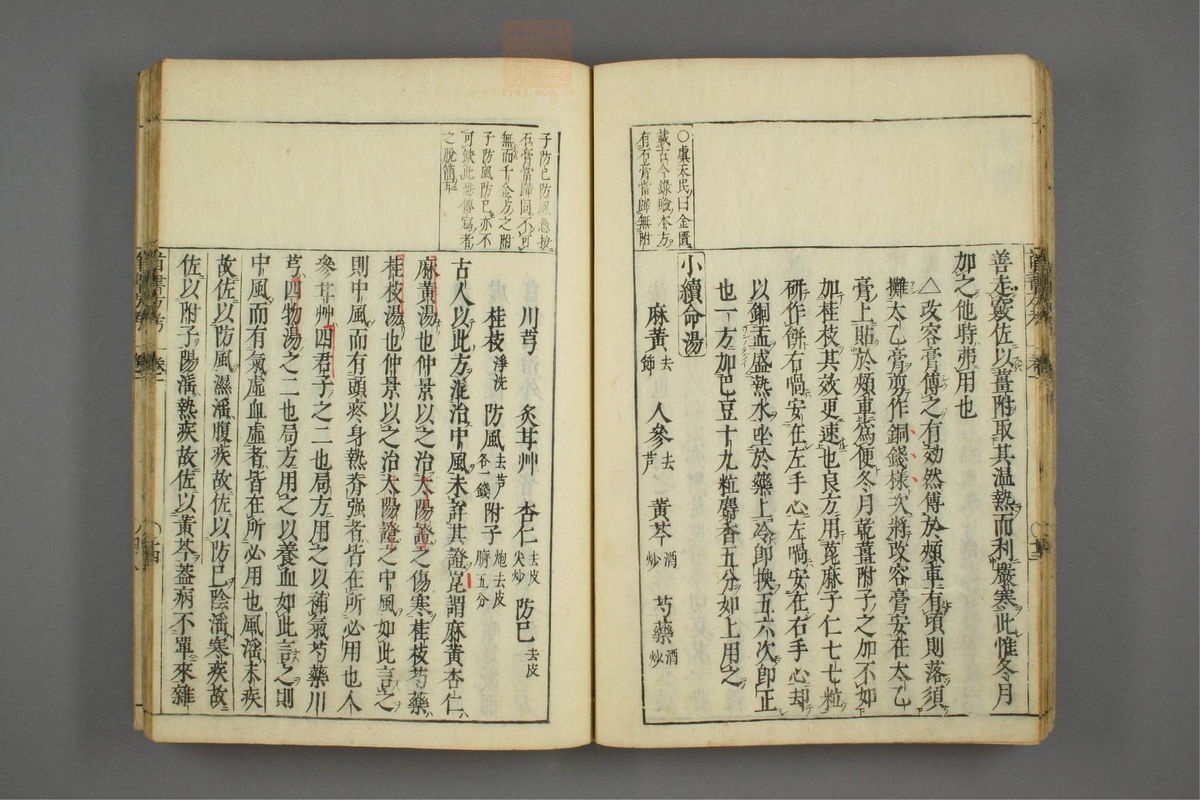 〇虞天民曰金匱
載古今錄驗本方
有石膏當歸無附
善走竅佐以薑附取其温熱而利嚴寒此惟冬月
加之他時弗用也
△改容膏傅之有効然傅於頰車有頃則落須
攤太乙膏剪作銅錢樣次將改容膏安在太乙
膏上貼於頰車爲便冬月乾薑附子之加不如
加桂枝其效更速也良方用萞麻子仁七七粒
研作餅右喎安在左手心左喎安在右手心却
以銅盂盛熱水坐於藥上冷卽換五六次卽正
也一方加巴豆十九粒麝香五分如上用之
小續命湯
麻黃去節 人參去芦 黃芩酒炒 芍藥酒炒
子防已防風愚按
石膏當歸固不可
無而千金方之附
子防風防已亦不
可缺此恐傳寫者
之脫簡耳
川芎 炙甘艸 杏仁去皮尖炒 防已去皮
桂枝淨洗 防風去芦各一錢 附子炮去皮臍五分
古人以此方混治中風未詳其證崑謂麻黃杏仁
麻黃湯也仲景以之治太陽證之傷寒桂枝芍藥
桂枝湯也仲景以之治太陽證之中風如此言之
則中風而有頭疼身熱脊強者皆在所必用也人
參甘艸四君子之二也局方用之以補氣芍藥川
芎四物湯之二也局方用之以養血如此言之則
中風而有氣虛血虛者皆在所必用也風滛末疾
故佐以防風濕滛腹疾故佐以防已陰滛寒疾故
佐以附子陽滛熱疾故佐以黃芩葢病不單來雜